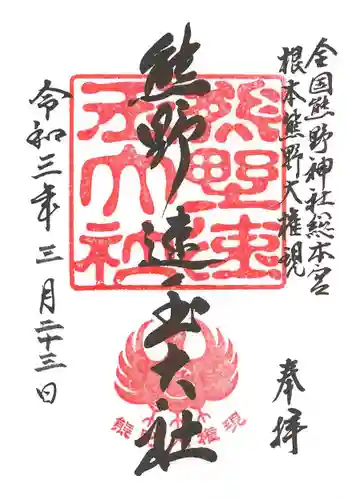 全国熊野神社総本宮
根本熊野大権現
奉拝
熊野速玉大社
熊野速玉大社
熊野権現
令和三年三月二十三日